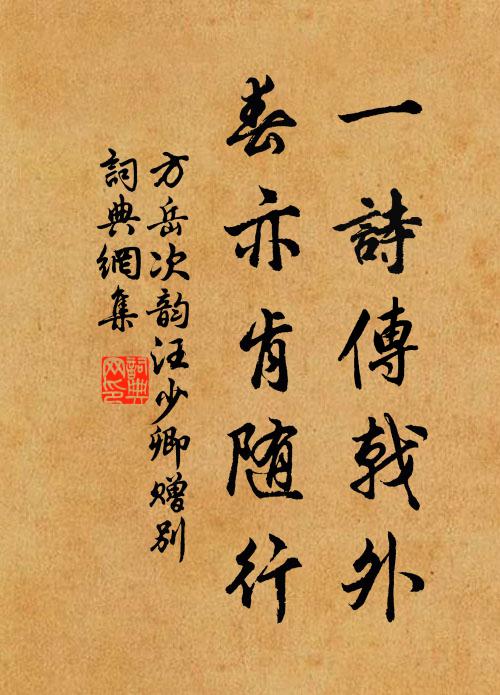 一詩傳戟外
春亦肯随行
方岳次韵汪少卿赠别
詞典網集
詞典网印